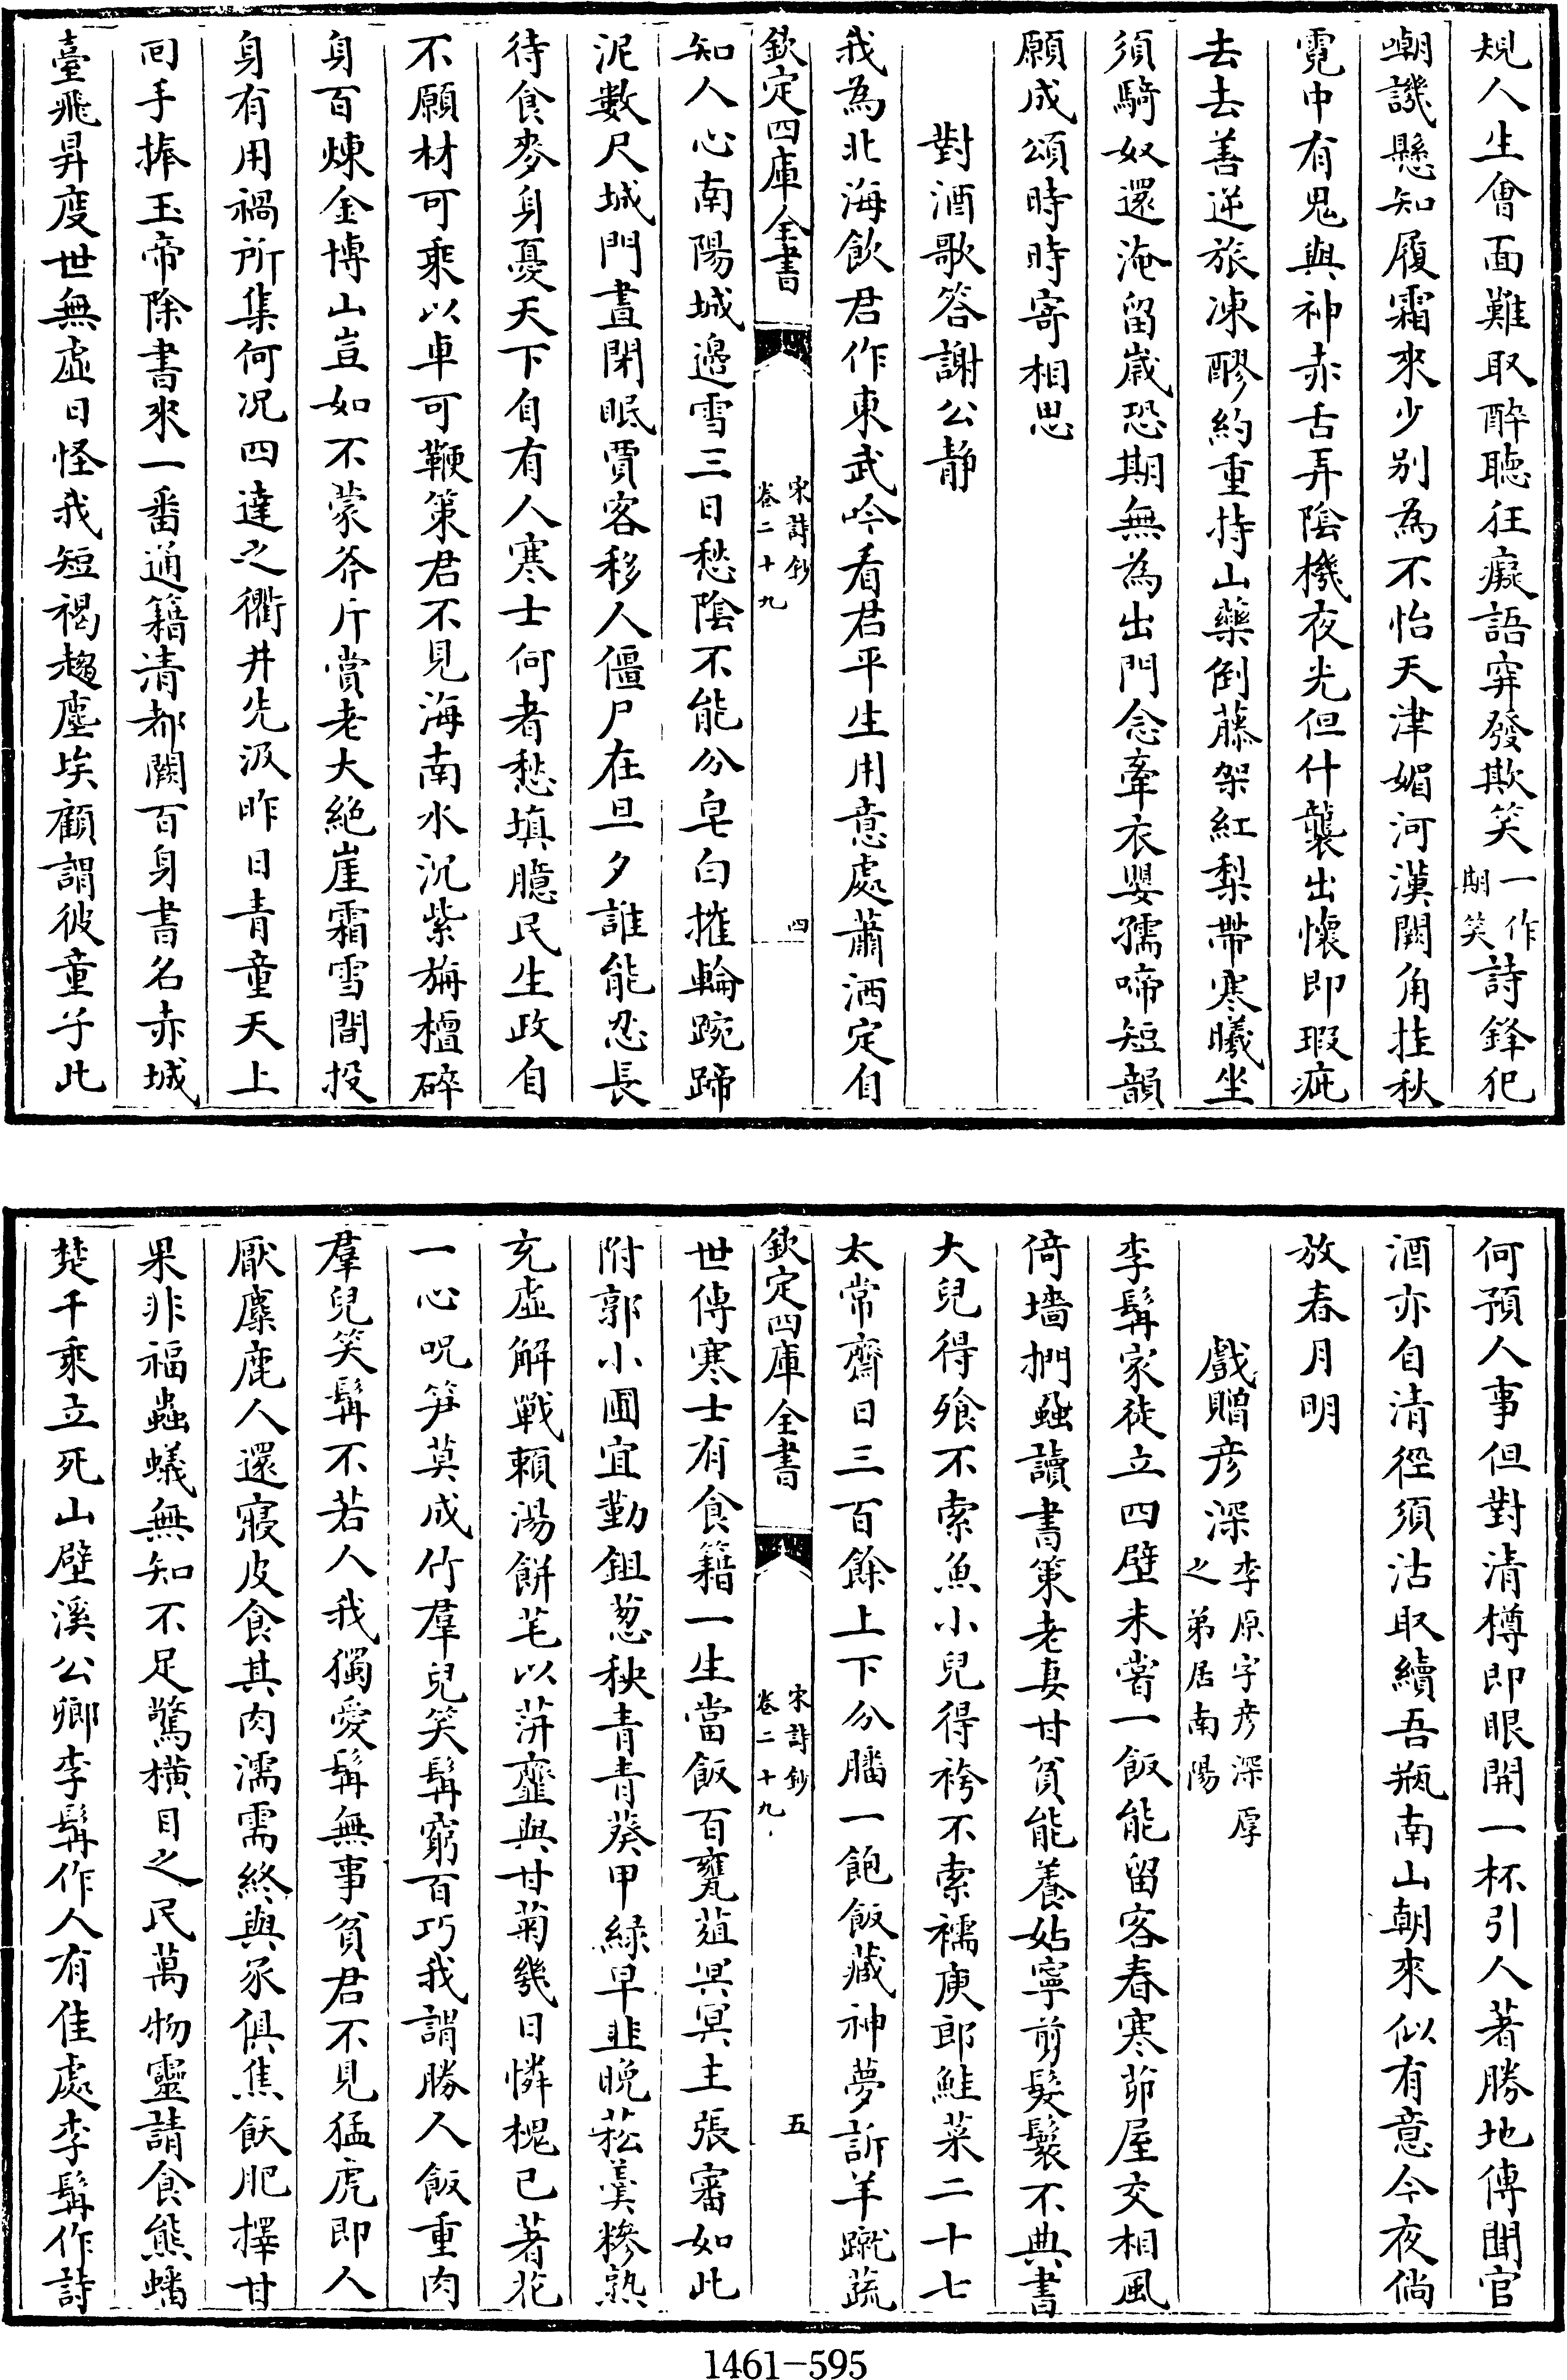 規人生會面難取醉聽狂癡語穽發欺笑一作期笑詩鋒犯
嘲譏懸知履霜來少别為不怡天津媚河漢闕角挂秋
霓中有鬼與神赤舌弄陰機夜光但什襲出懷即瑕疵
去去善逆旅凍醪約重持山藥倒藤架紅梨帶寒曦坐
須騎奴還淹留歲恐期無為出門念牽衣嬰孺啼短韻
願成頌時時寄相思
對酒歌答謝公静
我為北海飲君作東武吟看君平生用意處蕭洒定自
欽定四庫全書
宋詩鈔
卷二十九
四
知人心南陽城邊雪三日愁陰不能分皂白摧輪踠蹄
泥數尺城門晝閉眠賈客移人僵尸在旦夕誰能忍長
待食麥身憂天下自有人寒士何者愁填臆民生政自
不願材可乘以車可鞭策君不見海南水沉紫栴檀碎
身百煉金博山豈如不蒙斧斤賞老大絶崖霜雪間投
身有用禍所集何况四達之衢井先汲昨日青童天上
囘手捧玉帝除書來一番通籍清都闕百身書名赤城
臺飛昇度世無虚日怪我短褐趨塵埃顧謂彼童子此
何預人事但對清樽即眼開一杯引人著勝地傳聞官
酒亦自清徑須沽取續吾瓶南山朝來似有意今夜倘
放春月明
戲贈彦深李原字彦深厚之弟居南陽
李髯家徒立四壁未嘗一飯能留客春寒茆屋交相風
倚墻捫蝨讀書策老妻甘貧能養姑寧剪髮鬟不典書
大兒得飱不索魚小兒得袴不索襦庾郎鮭菜二十七
太常齋日三百餘上下分膰一飽飯藏神夢訴羊蹴蔬
欽定四庫全書
宋詩鈔
卷二十九
五
世傳寒士有食籍一生當飯百甕葅冥冥主張審如此
附郭小圃宜勤鉏葱秧青青葵甲緑早韭晩菘羮糝熟
充虚解戰賴湯餅芼以蓱虀與甘菊幾日憐槐已著花
一心呪笋莫成竹羣兒笑髯窮百巧我謂勝人飯重肉
羣兒笑髯不若人我獨愛髯無事貧君不見猛虎即人
厭麋鹿人還寢皮食其肉濡需終與豕俱焦飫肥擇甘
果非福蟲蟻無知不足驚横目之民萬物靈請食熊蹯
楚千乘立死山壁溪公卿李髯作人有佳處李髯作詩
1461-595